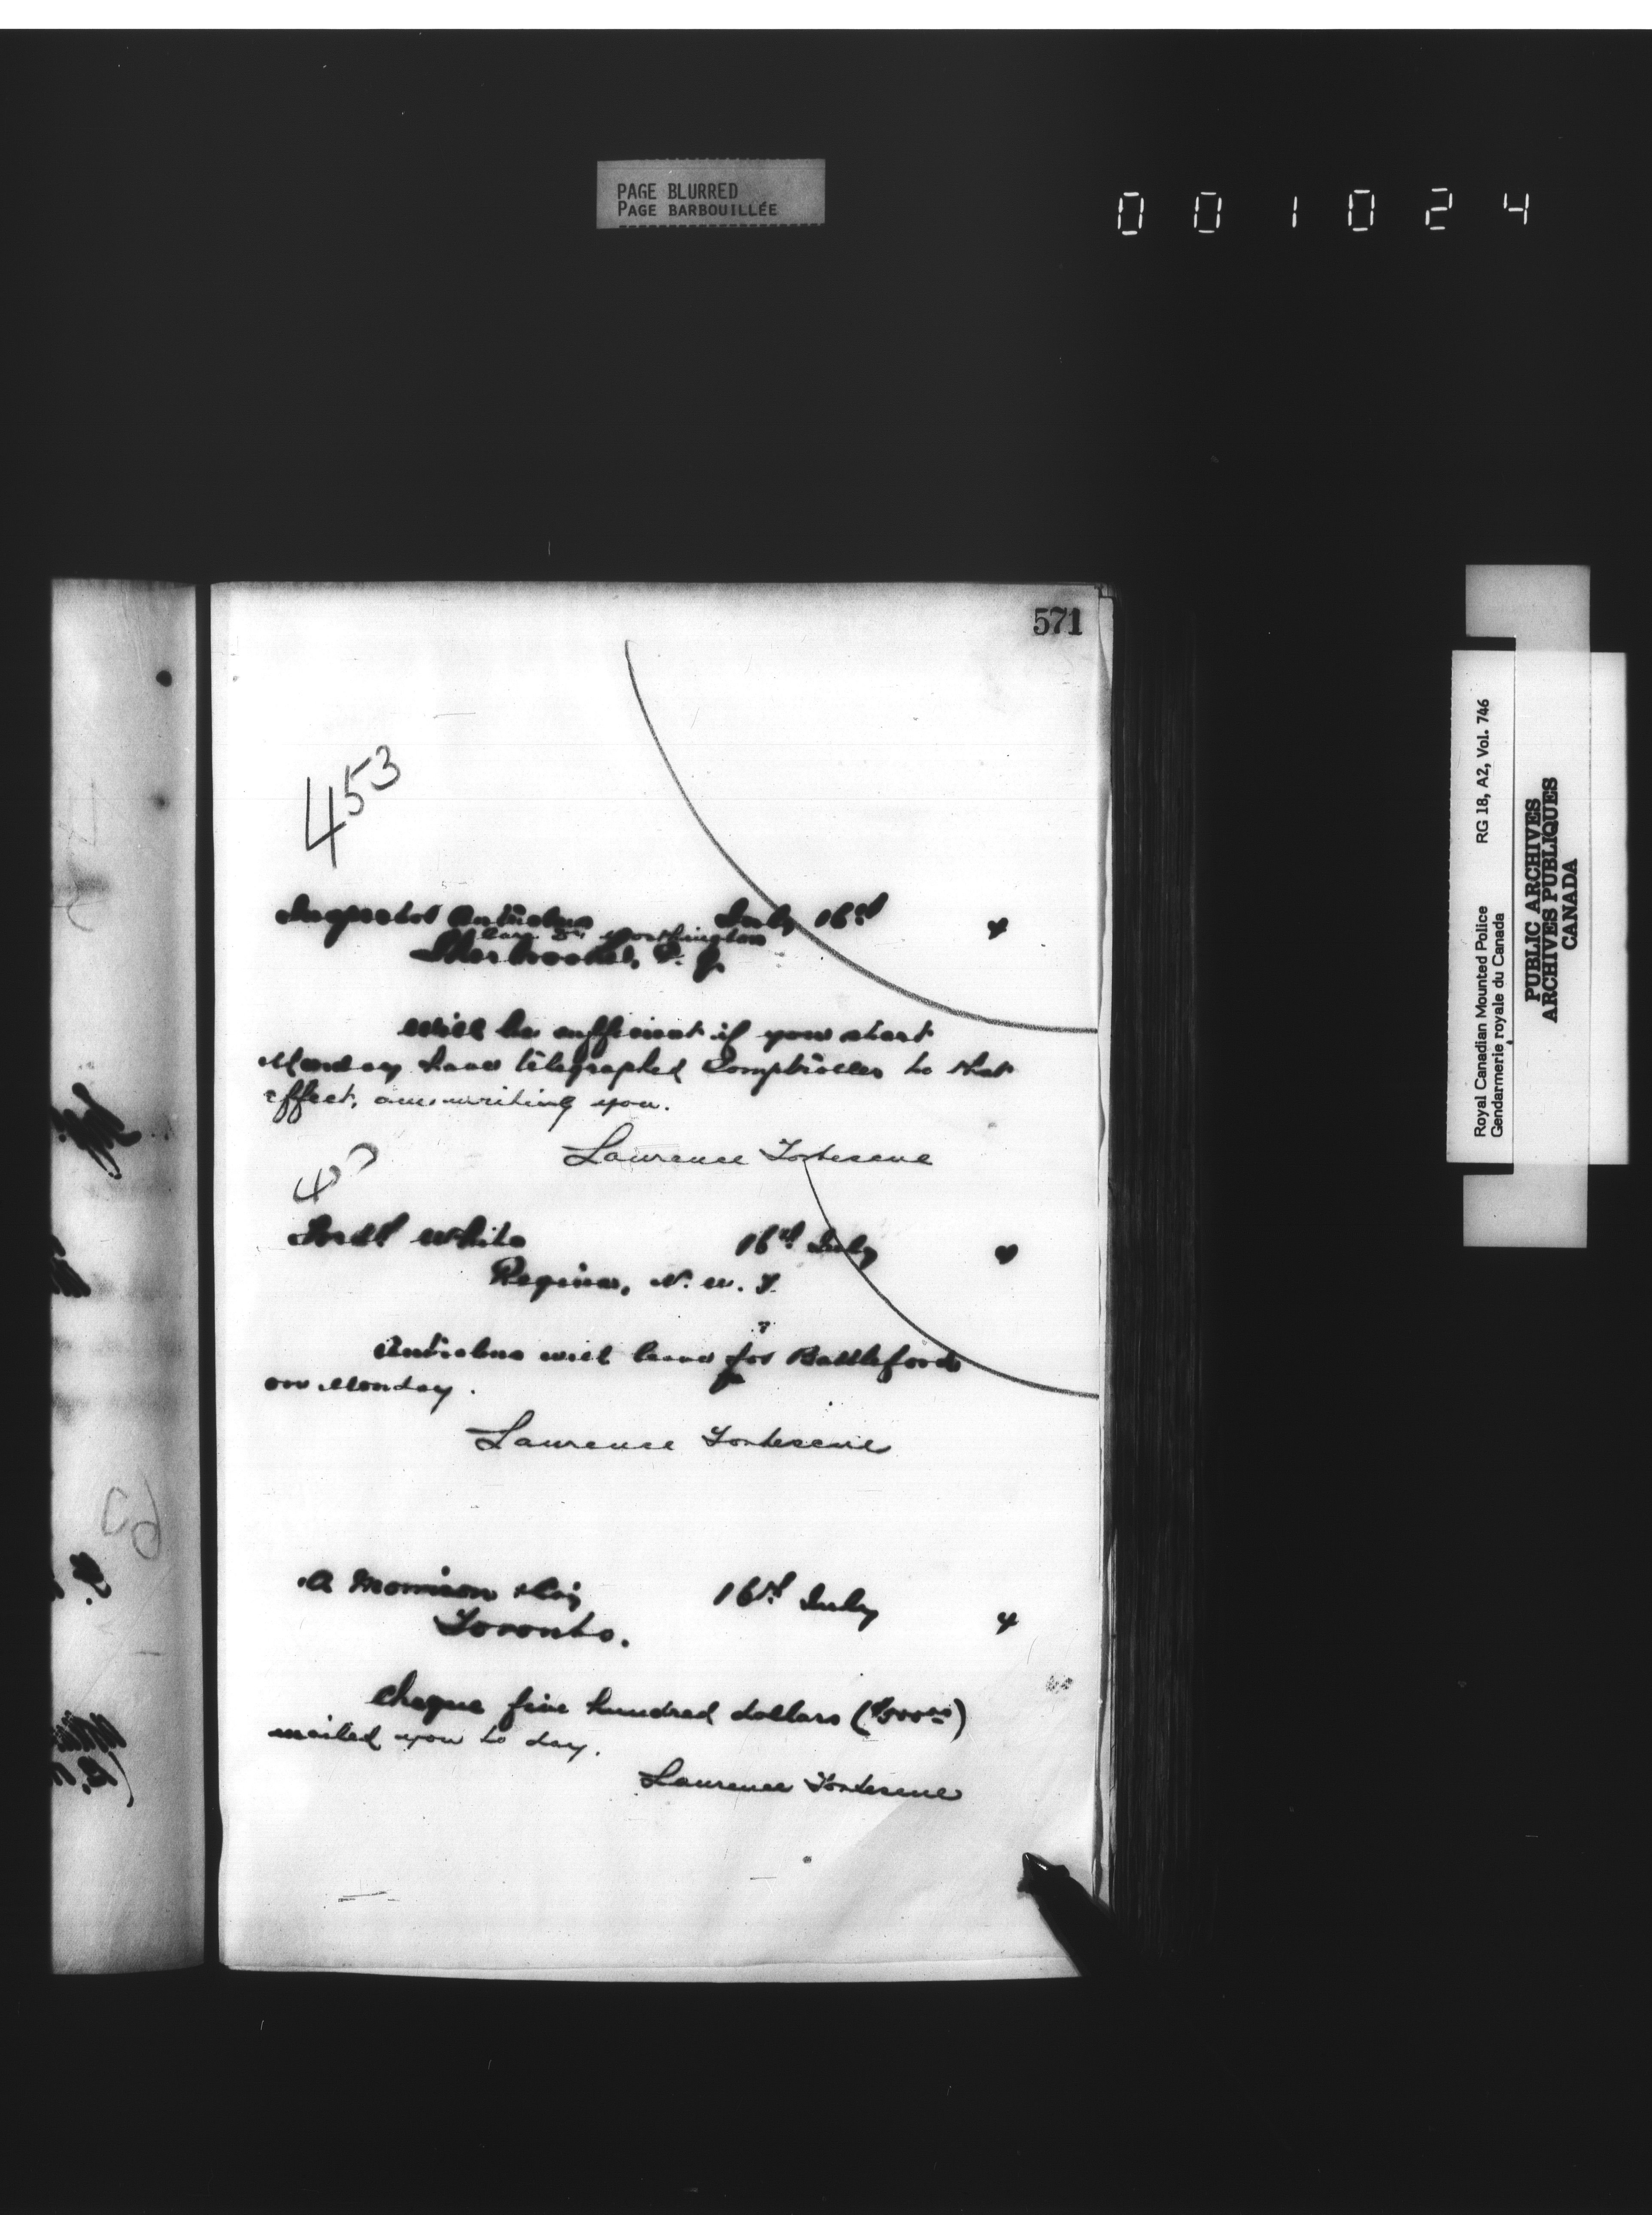 PAGE BLURRED
PAGE BARBOUILLÉE
001024
571
453
Inspector Antrobus July 16th 4
Care Dr Worthington
Sherbrooke, P. Q.
Will be sufficient if you start
Monday have telegraphed Comptroller to that
effect, am writing you.
Laurence Fortescue
Fredk White 16th July
Regina, N. W. T.
Antrobus will leave for Battleford
on Monday.
Laurence Fortescue
A Morrison Esq 16th July 4
Toronto.
Cheque five hundred dollars ($500 00)
mailed you to day.
Laurence Fortescue
Royal Canadian Mounted Police RG 18, A2, Vol. 746
Gendarmerie royale du Canada
PUBLIC ARCHIVES
ARCHIVES PUBLIQUES
CANADA